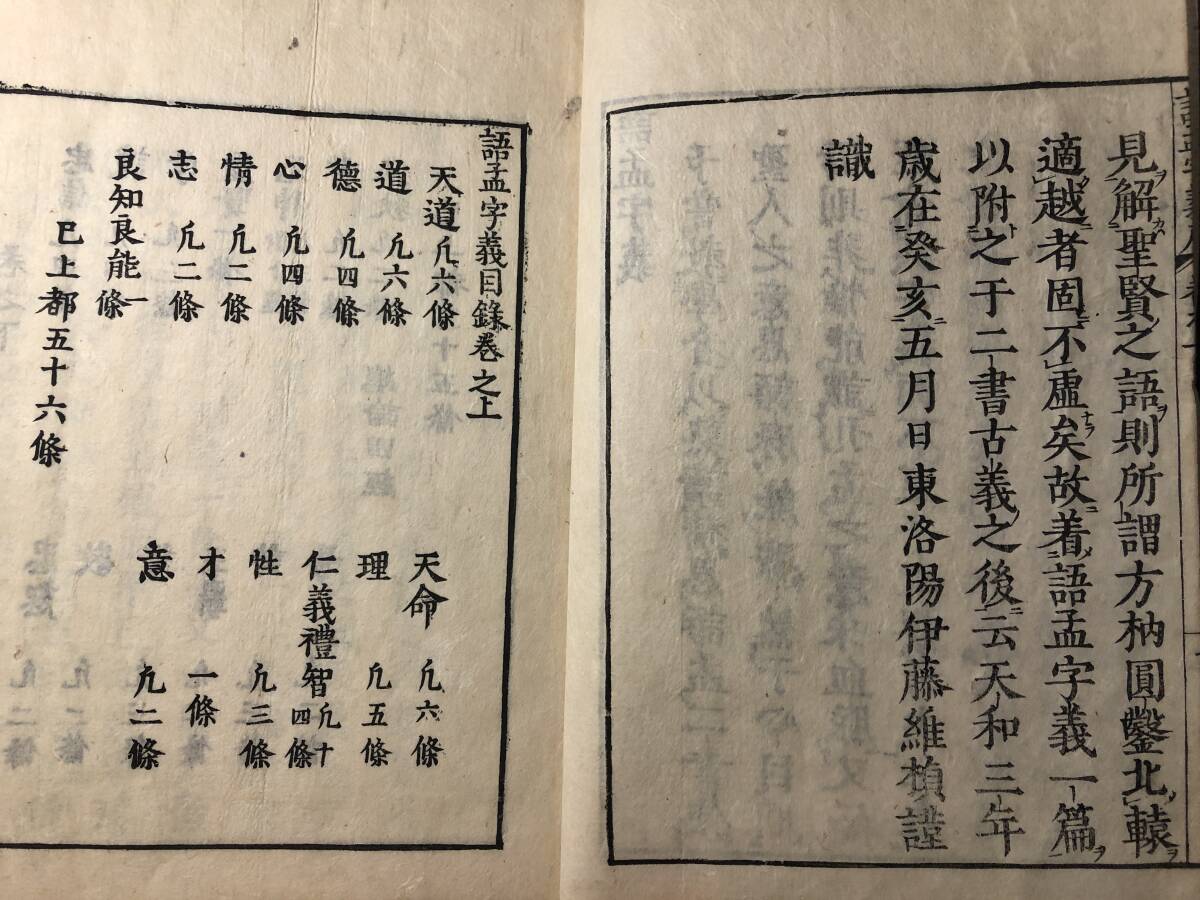 見解聖賢之語則所謂方枘圓鑿北轅
適越者固不虛矣故著語孟字義一篇
以附之于二書古義之後云天和三年
歲在癸亥五月日東洛陽伊藤維楨謹
識
語孟字義目錄卷之上
天道凢六條 天命 凢六條
道 凢六條 理 凢五條
德 凢四條 仁義禮智凢十四條
心 凢四條 性 凢三條
情 凢二條 才 一條
志 凢二條 意 凢二條
良知良能一條
已上都五十六條